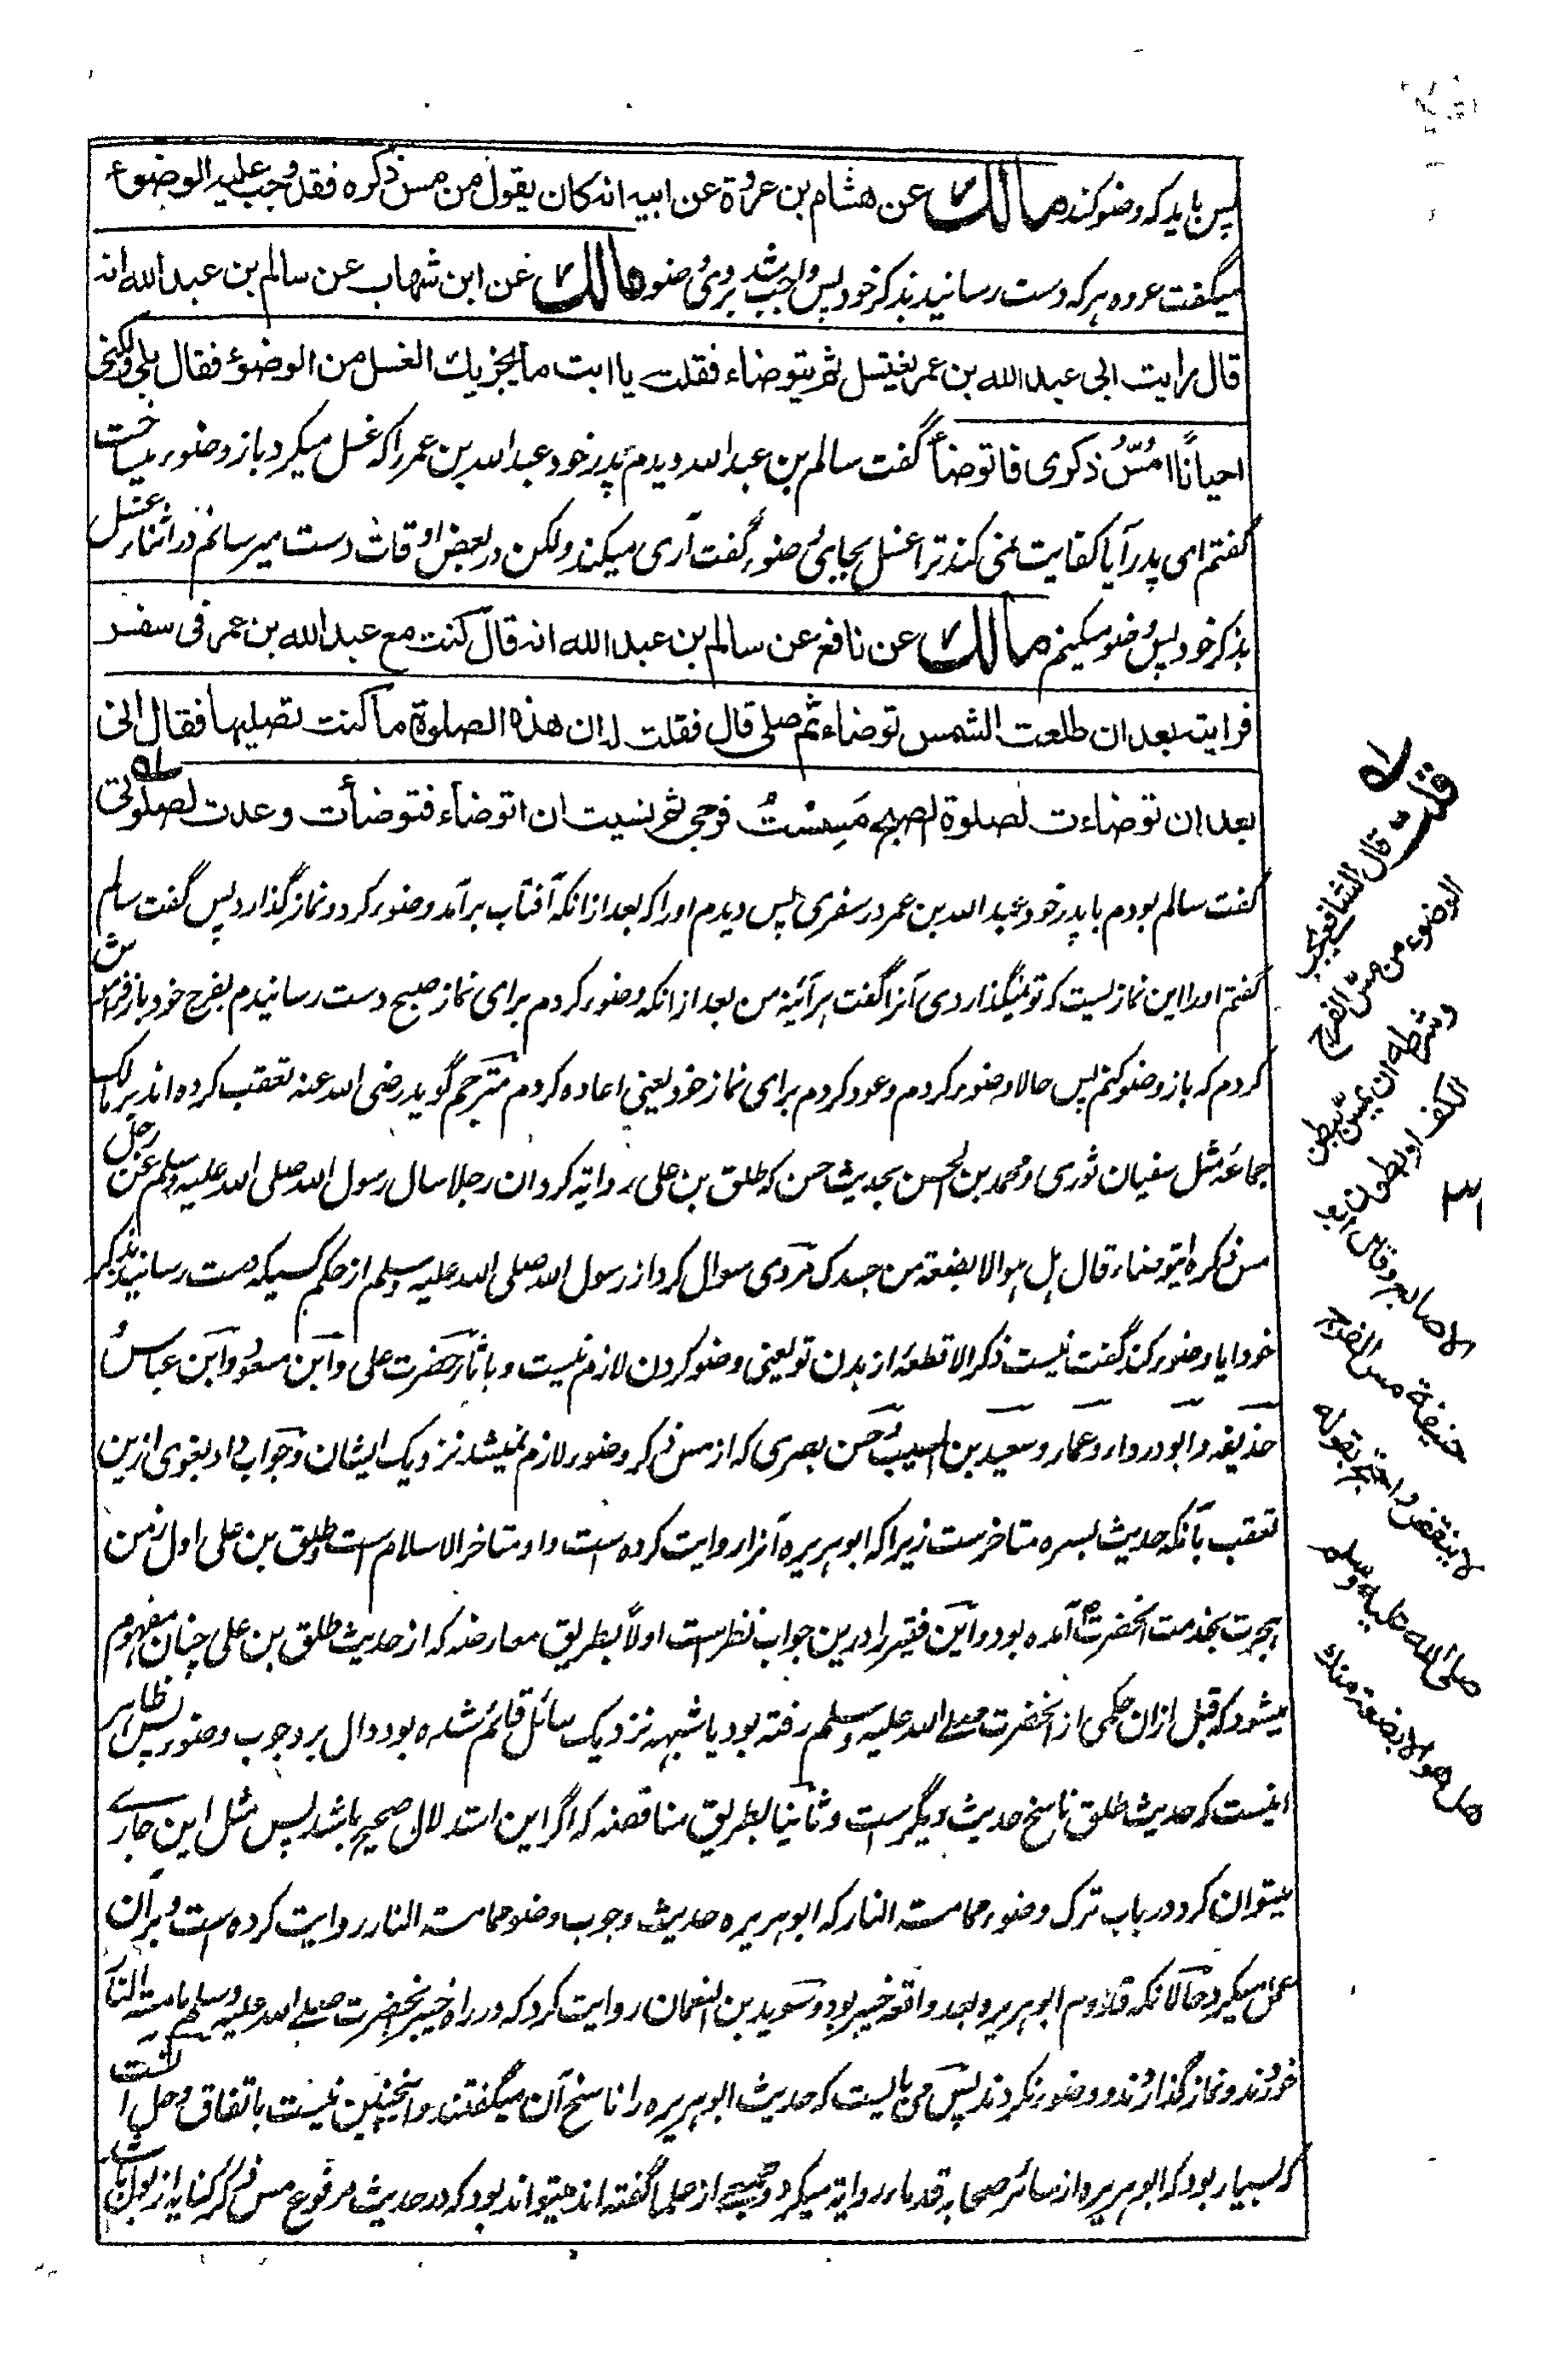 پس باید که وضو کند مالک عن هشام بن عروة عن ابیه انه کان یقول من مس ذکره فقد وجب علیه الوضوء
میگفت عروه هر که دست رسانید بذکر خود پس واجب شد بروی وضو مالک عن ابن شهاب عن سالم بن عبد الله انه
قال رایت ابی عبد الله بن عمر یغتسل ثم یتوضاء فقلت یا ابت ما یجزیك الغسل من الوضوء فقال بلی ولکنی
احیاناً امَسُّ ذکری فاتوضأ گفت سالم بن عبد الله دیدم پدر خود عبد الله بن عمر را که غسل میکرد باز وضوء میساخت
گفتم ای پدر آیا کفایت نمی کند ترا غسل بجای وضوء گفت آری میکند ولکن در بعض اوقات دست میرسانم در اثناء غسل
بذکر خود پس وضو میکنم مالک عن نافع عن سالم بن عبد الله انه قال کنت مع عبد الله بن عمر فی سفر
فرایته بعد ان طلعت الشمس توضاء ثم صلی قال فقلت له ان هذه الصلوة ما کنت تصلیها فقال انی
بعد ان توضاءت لصلوة الصبح مَسِسْتُ فرجی ثم نسیت ان اتوضاء فتوضأت وعدت لصلوتی
گفت سالم بودم با پدر خود عبد الله بن عمر در سفری پس دیدم او را که بعد از انکه آفتاب برآمد وضوء کرد و نماز گذارد پس گفت سالم
گفتم او را این نمازیست که تو نمیگذاردی آنرا گفت هر آئینه من بعد از انکه وضوء کردم برای نماز صبح دست رسانیدم بفرج خود باز فراموش
کردم که باز وضو کنم پس حالا وضوء کردم و عود کردم برای نماز خود یعنی اعاده کردم مترجم گوید رضی الله عنه تعقب کرده اند بر مالک
جماعه مثل سفیان ثوری و محمد بن الحسن بحدیث حسن که طلق بن علی روایة کرد ان رجلا سال رسول الله صلی الله علیه وسلم عن رجل
مس ذکره ایتوضاء قال هل هو الا بضعة من جسدک مردی سوال کرد از رسول الله صلی الله علیه وسلم از حکم کسیکه دست رسانید بذکر
خود ایا وضوء کند گفت نیست ذکر الا قطعه از بدن تو یعنی وضو کردن لازم نیست و باثار حضرت علی و ابن مسعود و ابن عباس و
حذیفه و ابو درداء و عمار و سعید بن المسیب و حسن بصری که از مس ذکر وضوء لازم نمیشد نزدیک ایشان و جواب داد بغوی ازین
تعقب بآنکه حدیث بسره متاخرست زیرا که ابو هریره آنرا روایت کرده است و او متاخر الاسلام ست و طلق بن علی اول زمن
هجرت بخدمت آنحضرت آمده بود و این فقیر را درین جواب نظرست اولاً بطریق معارضه که از حدیث طلق بن علی چنان مفهوم
میشود که قبل ازان حکمی از آنحضرت صلی الله علیه وسلم رفته بود یا شبهه نزدیک سائل قائم شده بود دال بر وجوب وضوء پس ظاهر
انیست که حدیث طلق ناسخ حدیث دیگرست و ثانیا بطریق مناقضه که اگر این استدلال صحیح باشد پس مثل این جاری
میتوان کرد در باب ترک وضوء مما مسته النار که ابو هریره حدیث وجوب وضو مما مسته النار روایت کرده ست و بران
عمل میکرد حالانکه قدوم ابو هریره بعد واقعه خیبر بود و سوید بن النعمان روایت کرد که در راه خیبر آنحضرت صلی الله علیه وسلم ما مسته النار
خوردند و نماز گذاردند و وضوء نکردند پس می بایست که حدیث ابو هریره را ناسخ آن میگفتند و اینچنین نیست باتفاق و حل آنست
که بسیار بود که ابو هریره از سائر صحابه قدماء روایة میکرد و جمعی از علما گفته اند میتواند بود که در حدیث مرفوع مس ذکر کنایه از بول باشد
له قلت قال الشافعی یجب
الوضوء من مس الفرج
وشرطه ان یمس ببطن
الکف او بطون
الاصابع وقال ابو
حنیفة مس الفرج
لا ینقض واحتج بقوله
صلی الله علیه وسلم
هل هو الا بضعة منك
۳۱